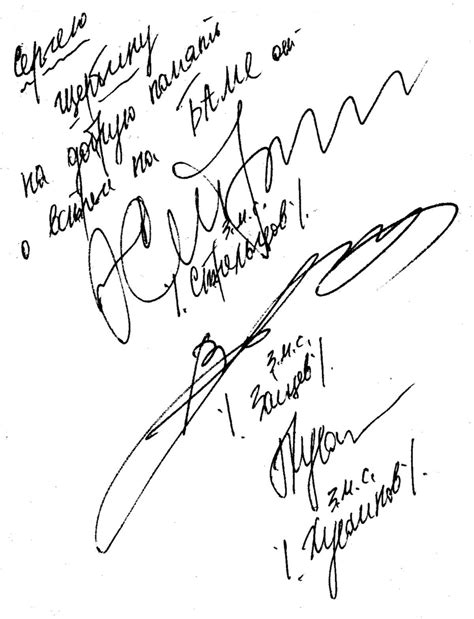 Сергею
Щербину
на добрую память
о встрече на БАМе от
з.м.с.
/. Стрельцов ./.
з.м.с.
/. Зайцев /.
з.м.с.
/. Хусаинов /.